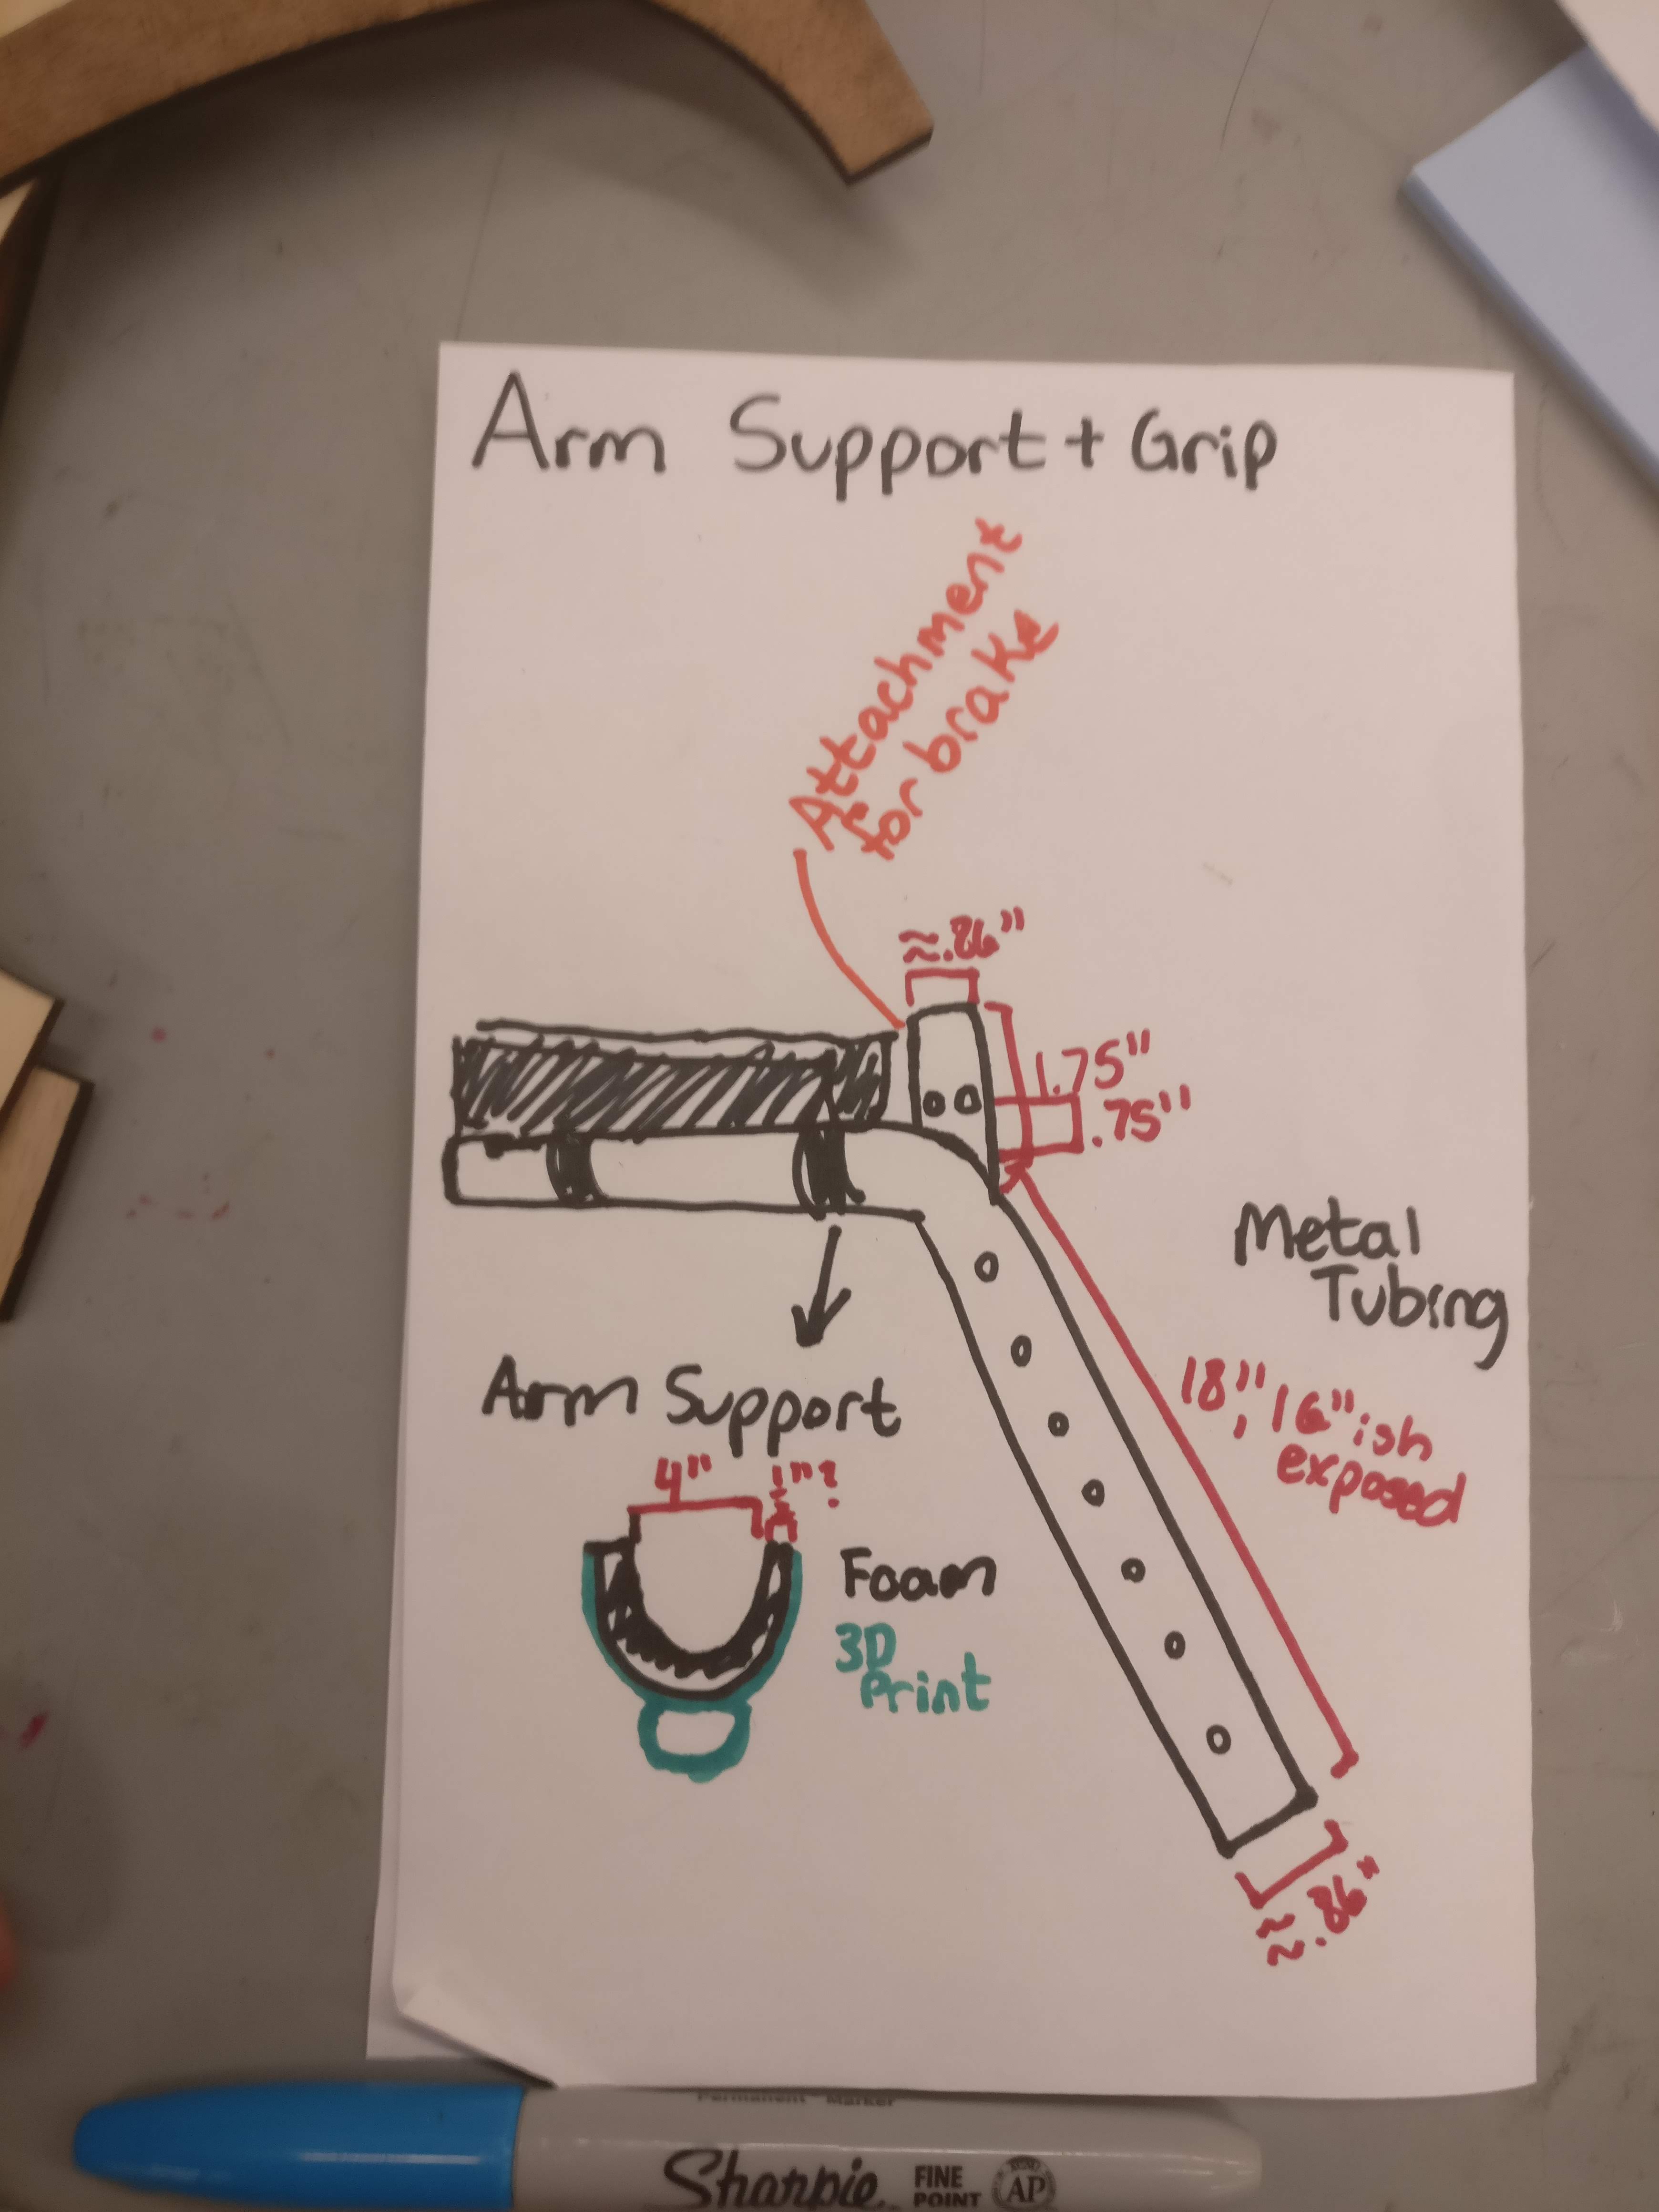 Arm Support + Grip
Attachment
for brake
≈.86"
1.75"
.75"
Metal
Tubing
18", 16"ish
exposed
Arm Support
4"
Foam
3D
Print
≈.86"
Permanent Marker
Sharpie
FINE
POINT
AP